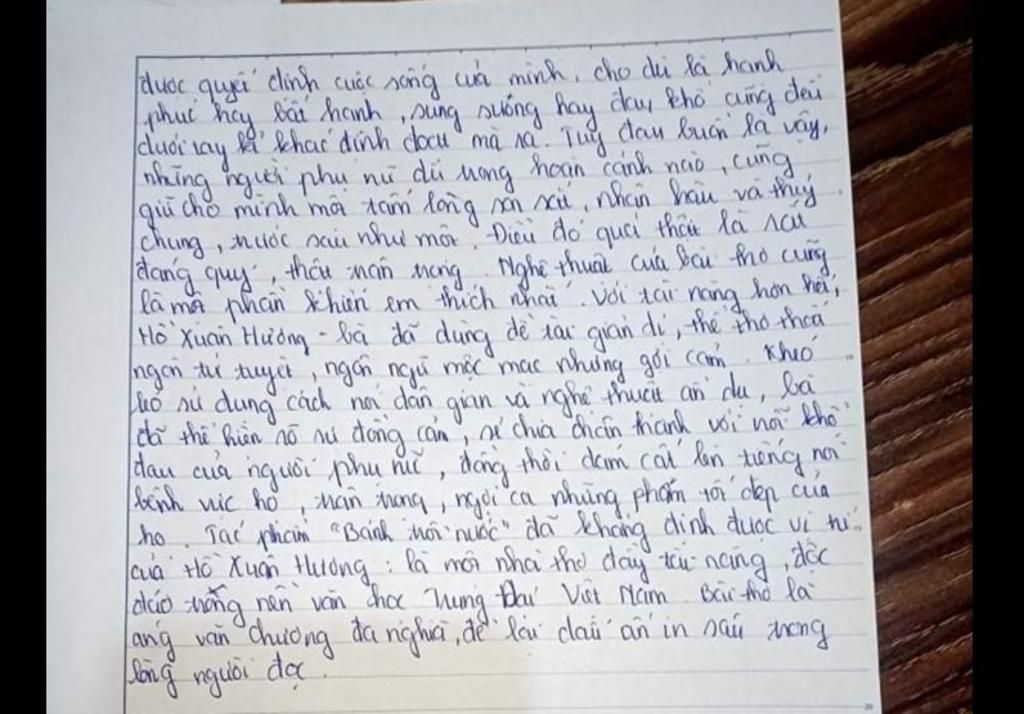 được quyết định cuộc sống của mình, cho dù là hạnh
phúc hay bất hạnh, sung sướng hay đau khổ cũng đều
dưới tay kẻ khác định đoạt mà ra. Tuy đau buồn là vậy,
những người phụ nữ dù trong hoàn cảnh nào, cũng
giữ cho mình một tấm lòng son sắt, nhân hậu và thủy
chung, trước sau như một. Điều đó quả thật là rất
đáng quý, thật trân trọng. Nghệ thuật của bài thơ cũng
là một phần khiến em thích nhất. Với tài năng hơn hết,
Hồ Xuân Hương - bà đã dùng đề tài giản dị, thể thơ thất
ngôn tứ tuyệt, ngôn ngữ mộc mạc nhưng gợi cảm. Khéo
léo sử dụng cách nói dân gian và nghệ thuật ẩn dụ, bà
đã thể hiện rõ sự đồng cảm, sẻ chia chân thành với nỗi khổ
đau của người phụ nữ, đồng thời dám cất lên tiếng nói
bênh vực họ, trân trọng, ngợi ca những phẩm tốt đẹp của
họ. Tác phẩm "Bánh trôi nước" đã khẳng định được vị trí
của Hồ Xuân Hương: là một nhà thơ đầy tài năng, độc
đáo trong nền văn học Trung Đại Việt Nam. Bài thơ là
áng văn chương đa nghĩa, để lại dấu ấn in sâu trong
lòng người đọc.